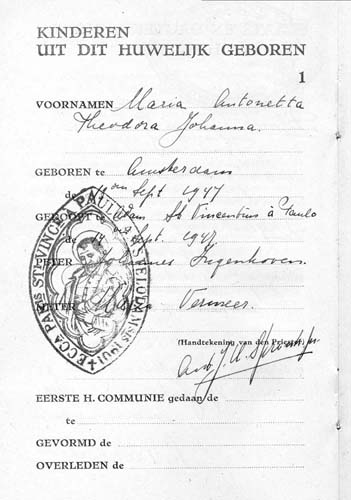 KINDEREN
UIT DIT HUWELIJK GEBOREN
1
VOORNAMEN Maria Antonetta
Theodora Johanna.
GEBOREN te Amsterdam
de Sept 1947
GEDOOPT te A'dam St Vincentius à Paulo
de Sept. 1947
PETER Johannes
METER Maria Vermeer.
(Handtekening van den Priester)
EERSTE H. COMMUNIE gedaan de
te
GEVORMD de
OVERLEDEN de